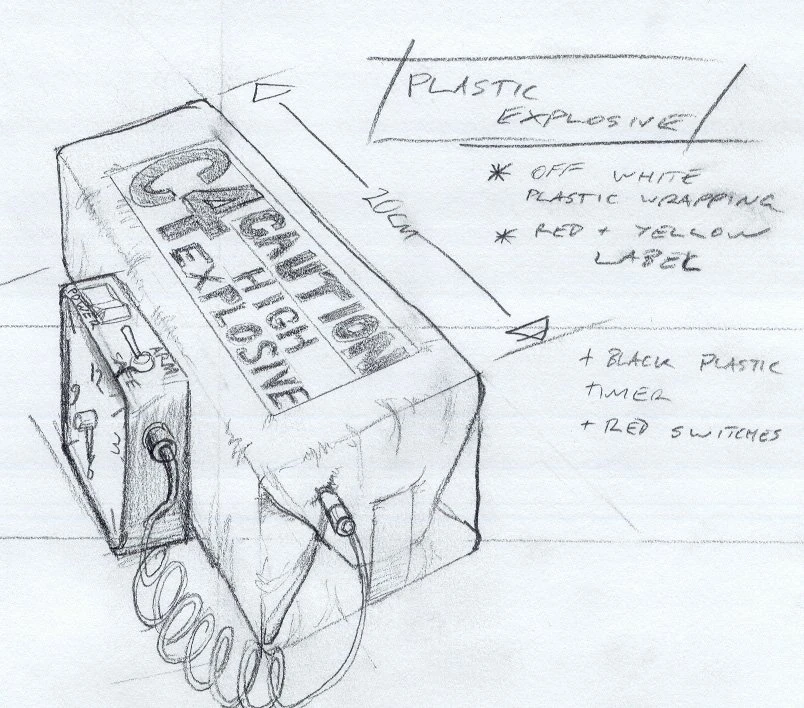 PLASTIC
EXPLOSIVE
* OFF WHITE
PLASTIC WRAPPING
* RED + YELLOW
LABEL
20CM
+ BLACK PLASTIC
TIMER
+ RED SWITCHES
C4
CAUTION
HIGH
EXPLOSIVE
POWER
ARM
12
3
9